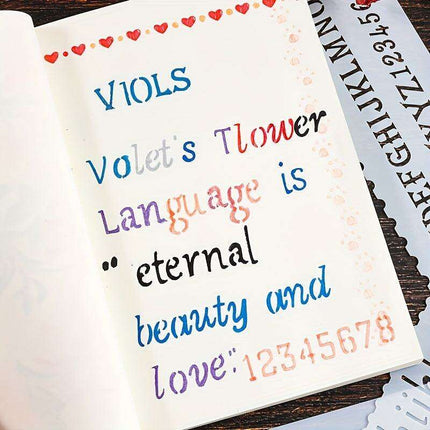 VIOLS
Volet's Tlower
Language is
" eternal
beauty and
love:" 12345678
GHIJKLMNO